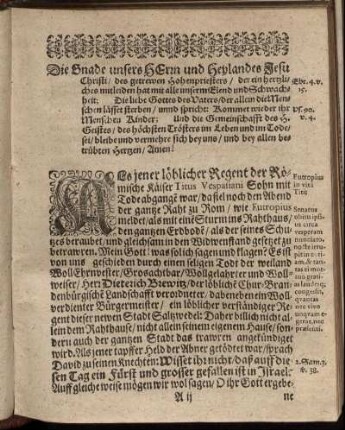 Die Gnade unsers HErrn und Heylandes Jesu
Christi / des getrewen Hohenpriesters / der ein hertzli-
ches mitleiden hat mit alle unserm Elend und Schwach-
heit: Die liebe Gottes des Vaters / der allen die Men-
schen lässet sterben / unnd spricht: Kommet wieder ihr
Menschen Kinder: Und die Gemeinschafft des H.
Geistes / des höchsten Trösters im Leben und im Tode /
sei / bleibe und vermehre sich bey uns / und bey allen be-
trübten Hertzen / Amen!
Ebr. 4. v.
15.
Ps. 90.
v. 4.
Als jener löblicher Regent der Rö-
mische Käiser Titus Vespatiani Sohn mit
Tode abgangē war / da fiel noch den Abend
der gantze Raht zu Rom / wie Eutropius
meldet / als mit eine Sturm ins Rahthaus /
den gantzen Erdbodē / als der seines Schu-
tzes beraubet / und gleichsam in den Widwenstand gesetzet zu
betrawren. Mein Gott! was solich sagen und klagen? Es ist
von uns geschieden durch einen seligen Tod der weiland
WollEhrnvester / Grosachtbar / Wolgelahrter und Woll-
weiser / Herr Dieterich Biewitz / der löbliche Chur-Bran-
denburgische Landschafft verordneter / daben eben ein Wol-
verdienter Bürgermeister / ein löblicher verständiger Re-
gent dieser newen Stadt Saltzwedel: Daher billich nicht al-
lein dem Rathhause / nicht allein seinem eigenem Hause / son-
dern auch der gantzen Stadt das trawren angekündiget
wird. Als jener tapffer Held der Abner getödtet war / sprach
David zu seinen Knechten: Wisset ihr nicht / daß auff die-
sen Tag ein Fürst und grosser gefallen ist in Israel.
Auff gleiche weise mögen wir wol sagen / O ihr Gott ergebe-
Eutropius
in vita
Titi
Senatus
2. Sam. 3.
v. 38.
A ij
ne